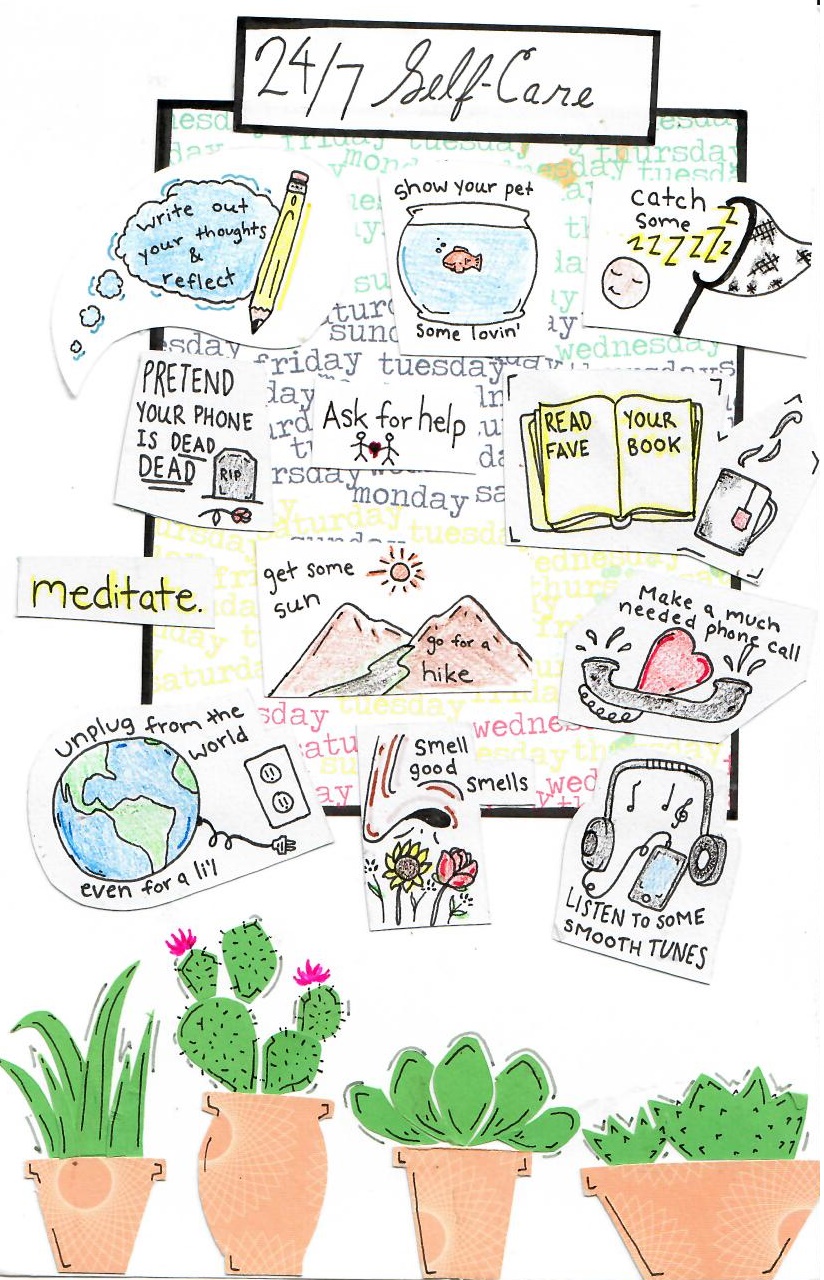 24/7 Self-Care
friday tuesday
thursday
write out
your thoughts
&
reflect
show your pet
some lovin'
catch
some
z z z z z z z
wednesday
friday tuesday
PRETEND
YOUR PHONE
IS DEAD
DEAD
RIP
Ask for help
READ
FAVE
YOUR
BOOK
monday
saturday
tuesday
meditate.
get some
sun
go for a
hike
Make a much
needed phone call
unplug from the
world
even for a li'l
Smell
good
smells
LISTEN TO SOME
SMOOTH TUNES